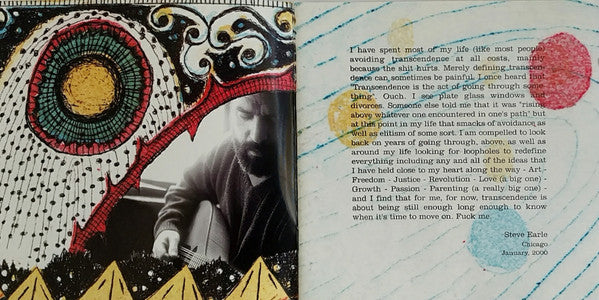 I have spent most of my life (like most people)
avoiding transcendence at all costs, mainly
because the shit hurts. Merely defining transcen-
dence can sometimes be painful. I once heard that
"Transcendence is the act of going through some-
thing". Ouch. I see plate glass windows and
divorces. Someone else told me that it was "rising
above whatever one encountered in one's path" but
at this point in my life that smacks of avoidance as
well as elitism of some sort. I am compelled to look
back on years of going through, above, as well as
around my life looking for loopholes to redefine
everything including any and all of the ideas that
I have held close to my heart along the way - Art -
Freedom - Justice - Revolution - Love (a big one) -
Growth - Passion - Parenting (a really big one) -
and I find that for me, for now, transcendence is
about being still enough long enough to know
when it's time to move on. Fuck me
Steve Earle
Chicago
January, 2000